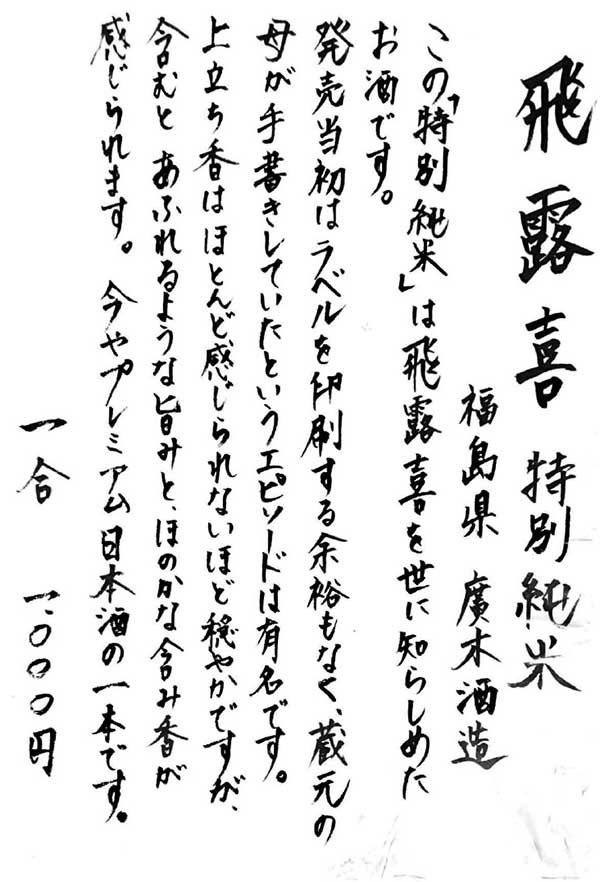 飛露喜 特別純米
福島県 廣木酒造
この「特別純米」は飛露喜を世に知らしめた
お酒です。
発売当初はラベルを印刷する余裕もなく、蔵元の
母が手書きしていたというエピソードは有名です。
上立ち香はほとんど感じられないほど穏やかですが、
含むとあふれるような旨みと、ほのかな含み香が
感じられます。今やプレミアム日本酒の一本です。
一合 一、〇〇〇円